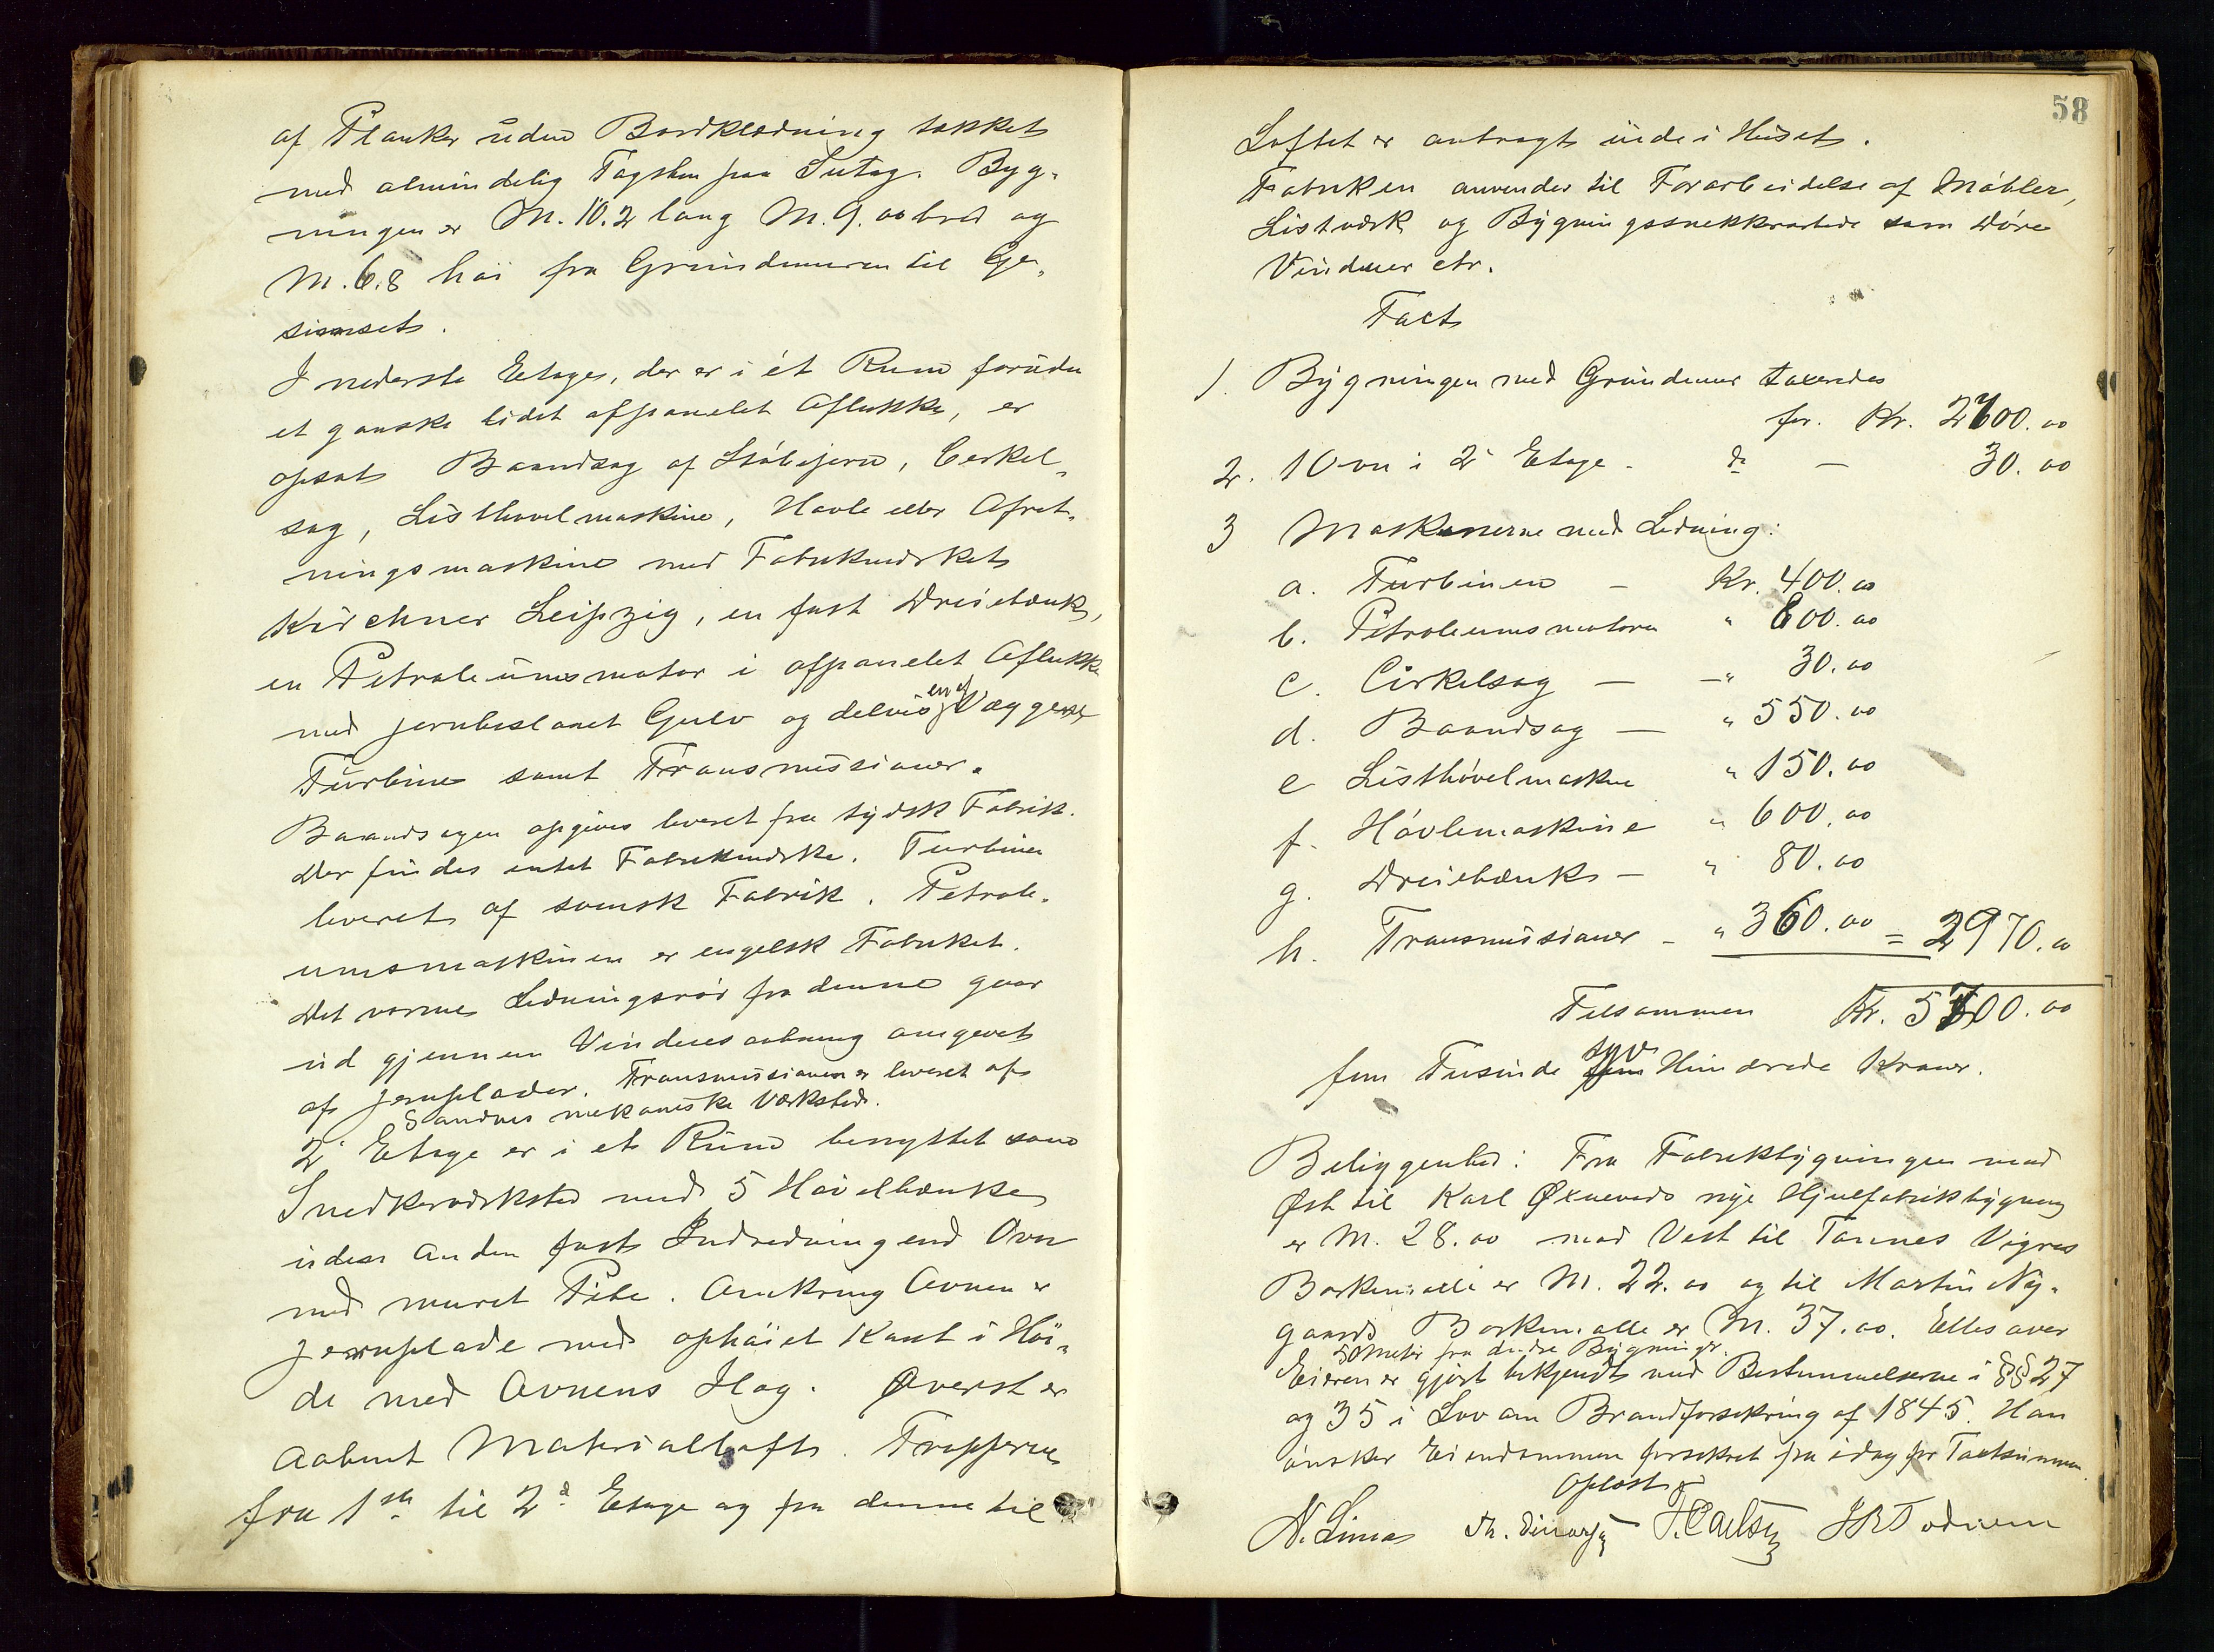 af Planker uden Bordklædning tækket
med almindelig Tagsten paa Sutag. Byg-
ningen er M. 10.2 lang M. 9.00 bred og
M. 6.8 höi fra Grundmuren til Ge-
simset.
I nederste Etage, der er i ét Rum foruden
et ganske lidet afpanelet Aflukke, er
opsat Baandsag af Støbejern, Cirkel-
sag, Listhøvelmaskine, Høvle eller Afret-
ningsmaskine med Fabrikmærket
Kirchner Leipzig, en fast Dreiebænk,
en Petroleumsmotor i afpanelet Aflukke
med jernbeslaaet Gulv og delvis en af Væggene
Turbine samt Transmissioner.
Baandsagen opgives leveret fra tydsk Fabrik.
Der findes intet Fabrikmærke. Turbinen
leveret af svensk Fabrik. Petrole-
umsmaskinen er engelsk Fabrikat.
Det varme Ledningsrør fra denne gaar
ud gjennem Vinduesaabning omgivet
af Jernplader. Transmissionen er leveret af
Sandnes mekaniske Værksted.
2' Etage er i et Rum benyttet som
Snedkerværksted med 5 Høvelbænke
uden anden fast Indredning end Ovn
med muret Pibe. Omkring Ovnen er
Jernplade med ophøiet Kant i Høi-
de med Ovnens Ilag. Øverst er
aabent Materialloft. Trapperne
fra 1ste til 2d Etage og fra denne til
58
Loftet er anbragt inde i Huset.
Fabriken anvendes til Forarbeidelse af Møbler,
Listværk og Bygningssnekkerarbeide som Döre
Vinduer etc.
Taxt
1. Bygningen med Grundmur taxeredes
for. Kr. 2700.00
2. 1 Ovn i 2' Etage - do — 30.00
3 Maskinerne med Ledning:
a. Turbinen — Kr. 400.00
b. Petroleumsmotoren " 800.00
c. Cirkelsag — — " 30.00
d. Baandsag — " 550.00
e Listhøvelmaskine " 150.00
f. Høvlemaskine " 600.00
g. Dreiebænk — " 80.00
h. Transmissioner - " 360.00 = 2970.00
Tilsammen Kr. 5700.00
fem Tusinde syv Hundrede Kroner.
Beliggenhed: Fra Fabrikbygningen mod
Øst til Karl Øxnevads nye Hjulfabrikbygning
er M. 28.00 mod Vest til Tønnes Vigres
Barkemølle er M. 22.00 og til Martin Ny-
gaards Barkemølle er M. 37.00. Ellers over
50 Meter fra andre Bygninger.
Eieren er gjort bekjendt med Bestemmelserne i §§ 27
og 35 i Lov om Brandforsikring af 1845. Han
ønsker Eiendommen forsikret fra idag for Taxtsummen.
Oplæst
N. Lima Th. Einarsen T. Carlsen